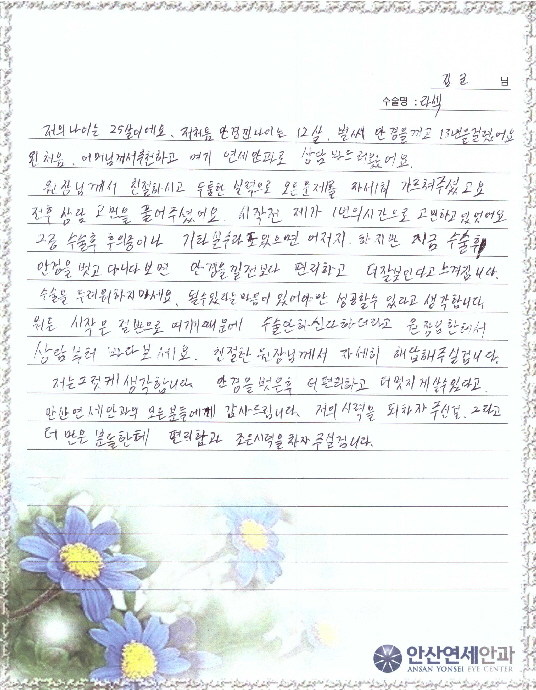 김 님
수술명 : 라섹
저의 나이는 25살이에요. 저 처음 안경 낀 나이는 12살, 벌써 안경을 끼고 13년을 걸렸어요
맨 처음, 어머님께서 추천하고 여기 연세안과로 상담 받으러 왔어요.
원장님께서 친절하시고 실력으로 모든 문제를 자세히 가르쳐주셨고요
전후 상담 고민을 풀어주셨어요. 시작전 제가 1년의 시간으로 고민하고 있었어요
그럼 수술후 후의증이나 기타 없으면 어저지. 하지만 지금 수술후
안경을 벗고 다니다보면 안경을 낄 전보다 편리하고 더 잘보인다고 느껴집니다.
수술을 두려워하지마세요. 될수있다는 마음이 있어야만 성공할수 있다고 생각합니다.
뭐든 시작은 절반으로 여기때문에 수술안하신다하더라도 원장님한테서
상담부터 받아보세요. 친절한 원장님께서 자세히 해답해주실겁니다.
저는 그렇게 생각합니다. 안경을 벗은후 더 편리하고 더 멋지게 살수있다고.
안산연세안과의 모든분들에게 감사드립니다. 저의 시력을 되찾자 주신걸. 그리고
더 많은 분들한테 편리함과 좋은시력을 찾자 주실겁니다.
안산연세안과
ANSAN YONSEI EYE CENTER